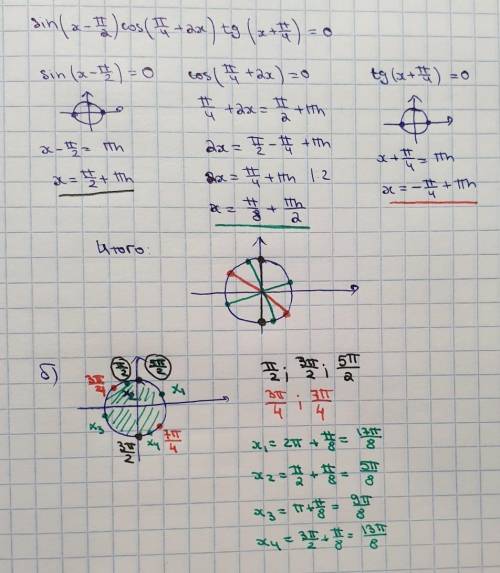 sin(x-π/2)cos(π/4+2x)tg(x+π/4)=0
sin(x-π/2)=0
x-π/2=πn
x=π/2+πn
cos(π/4+2x)=0
π/4+2x=π/2+πn
2x=π/2-π/4+πn
2x=π/4+πn |:2
x=π/8+πn/2
tg(x+π/4)=0
x+π/4=πn
x=-π/4+πn
Итого:
б)
π/2 5π/2
3π/4 x₂ x₁
x₃ x₄ 7π/4
3π/2
π/2; 3π/2; 5π/2
3π/4; 7π/4
x₁=2π+π/8=17π/8
x₂=π/2+π/8=5π/8
x₃=π+π/8=9π/8
x₄=3π/2+π/8=13π/8